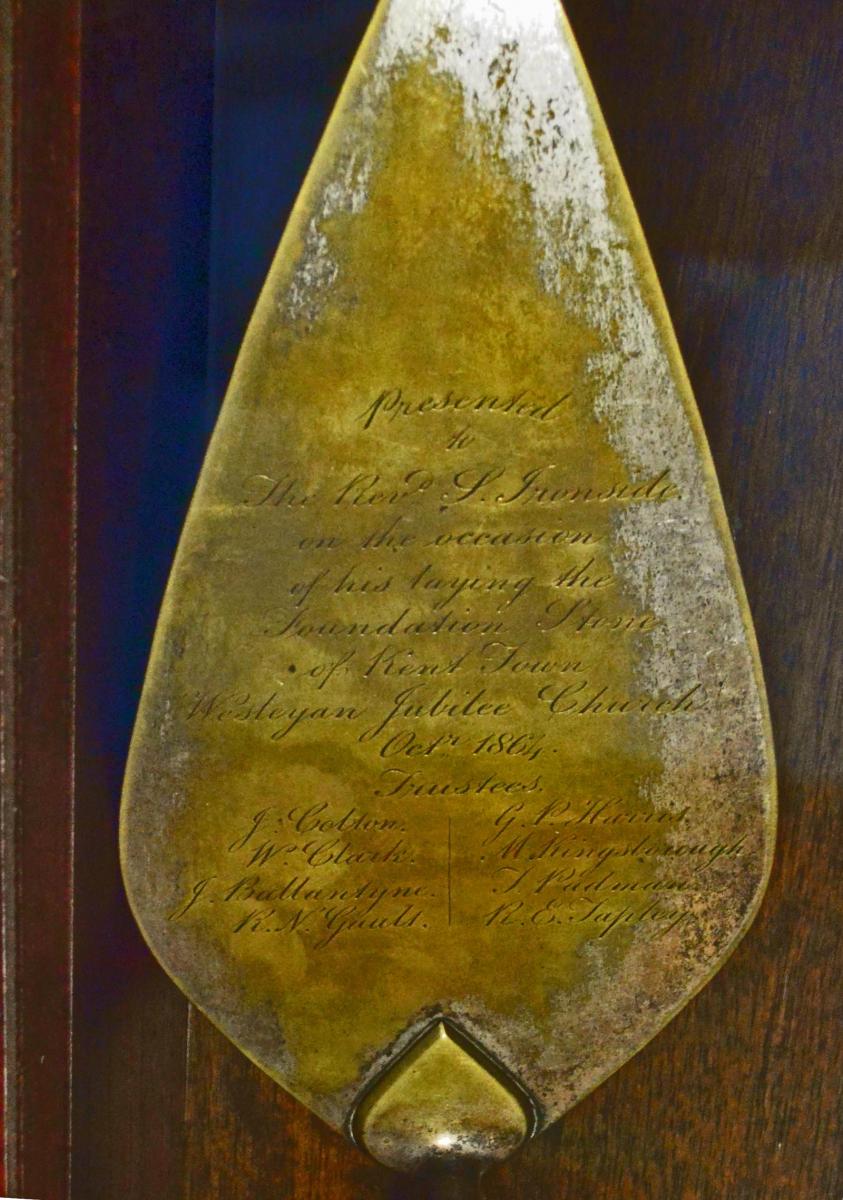 Presented
to
The Revd. S. Ironside.
on the occasion
of his laying the
Foundation Stone
of Kent Town
Wesleyan Jubilee Church
Octr. 1864.
Trustees.
J. Colton. G. P. Harris
W. Clark. M. Kingsborough
J. Ballantyne. T. Padman
R. N. Gault. R. E. Tapley